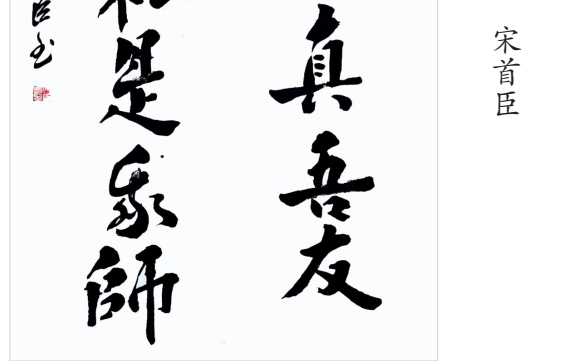 宋首臣
真吾友
是我師
臣书